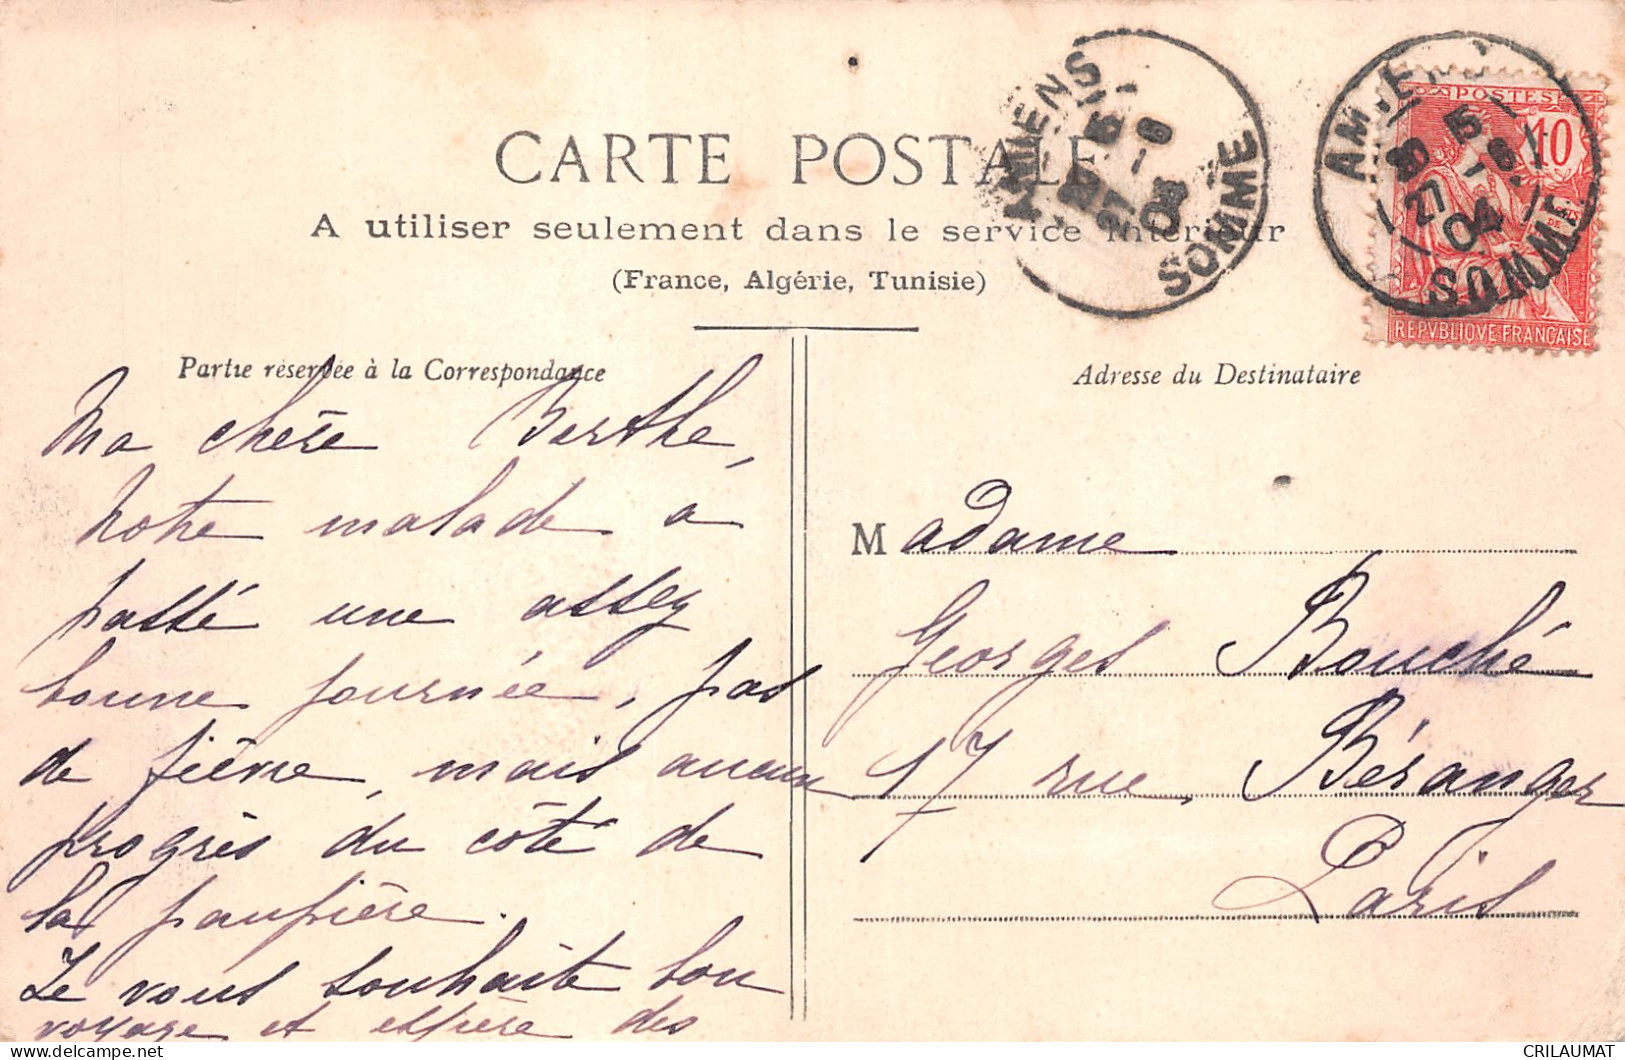 CARTE POSTALE
A utiliser seulement dans le service intérieur
(France, Algérie, Tunisie)
AMIENS
5
27 -6
04
SOMME
AMIENS
5
27 -6
04
SOMME
POSTES
10
REPVBLIQVE FRANÇAISE
Partie réservée à la Correspondance
Ma chère Berthe,
Notre malade a
passé une assez
bonne journée, pas
de fièvre, mais aucun
progrès du côté de
la paupière.
Je vous souhaite bon
voyage et espère des
Adresse du Destinataire
Madame
Georges Bouché
17 rue, Béranger
Paris
CRILAUMAT
delcampe.net